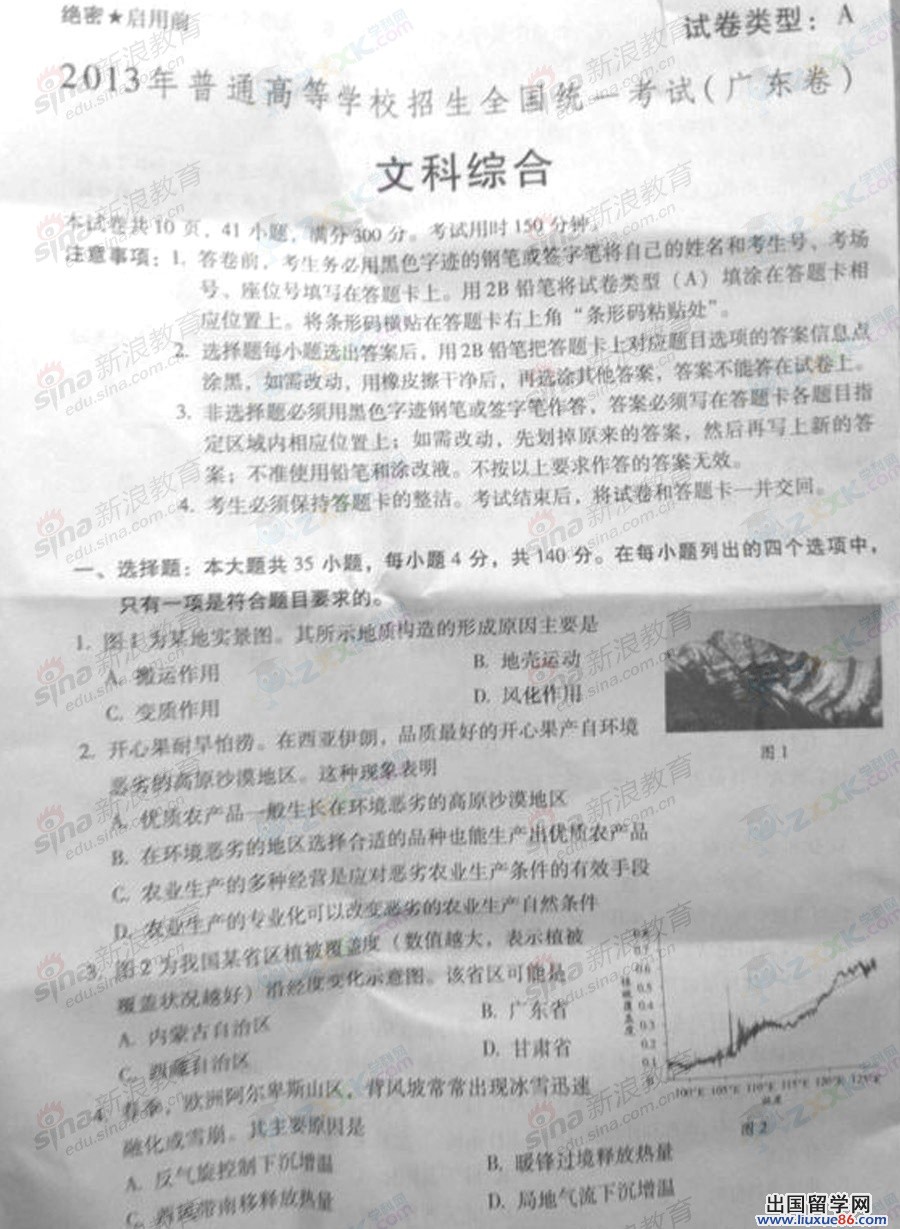 绝密★启用前
试卷类型：A
2013年普通高等学校招生全国统一考试（广东卷）
文科综合
本试卷共10页，41小题，满分300分。考试用时150分钟。
注意事项：1. 答卷前，考生务必用黑色字迹的钢笔或签字笔将自己的姓名和考生号、考场
号、座位号填写在答题卡上。用2B铅笔将试卷类型（A）填涂在答题卡相
应位置上。将条形码横贴在答题卡右上角“条形码粘贴处”。
2. 选择题每小题选出答案后，用2B铅笔把答题卡上对应题目选项的答案信息点
涂黑，如需改动，用橡皮擦干净后，再选涂其他答案，答案不能答在试卷上。
3. 非选择题必须用黑色字迹钢笔或签字笔作答，答案必须写在答题卡各题目指
定区域内相应位置上；如需改动，先划掉原来的答案，然后再写上新的答
案；不准使用铅笔和涂改液。不按以上要求作答的答案无效。
4. 考生必须保持答题卡的整洁。考试结束后，将试卷和答题卡一并交回。
一、选择题：本大题共35小题，每小题4分，共140分。在每小题列出的四个选项中，
只有一项是符合题目要求的。
1. 图1为某地实景图。其所示地质构造的形成原因主要是
A. 搬运作用
B. 地壳运动
C. 变质作用
D. 风化作用
图1
2. 开心果耐旱怕涝。在西亚伊朗，品质最好的开心果产自环境
恶劣的高原沙漠地区。这种现象表明
A. 优质农产品一般生长在环境恶劣的高原沙漠地区
B. 在环境恶劣的地区选择合适的品种也能生产出优质农产品
C. 农业生产的多种经营是应对恶劣农业生产条件的有效手段
D. 农业生产的专业化可以改变恶劣的农业生产自然条件
3. 图2为我国某省区植被覆盖度（数值越大，表示植被
覆盖状况越好）沿经度变化示意图。该省区可能是
A. 内蒙古自治区
B. 广东省
C. 西藏自治区
D. 甘肃省
植被覆盖度
0.8
0.7
0.6
0.5
0.4
0.3
0.2
0.1
0
100°E 105°E 110°E 115°E 120°E 125°E
经度
图2
4. 春季，欧洲阿尔卑斯山区，背风坡常常出现冰雪迅速
融化或雪崩。其主要原因是
A. 反气旋控制下沉增温
B. 暖锋过境释放热量
C. 西风带南移释放热量
D. 局地气流下沉增温
sina新浪教育
edu.sina.com.cn
出国留学网
www.liuxue86.com